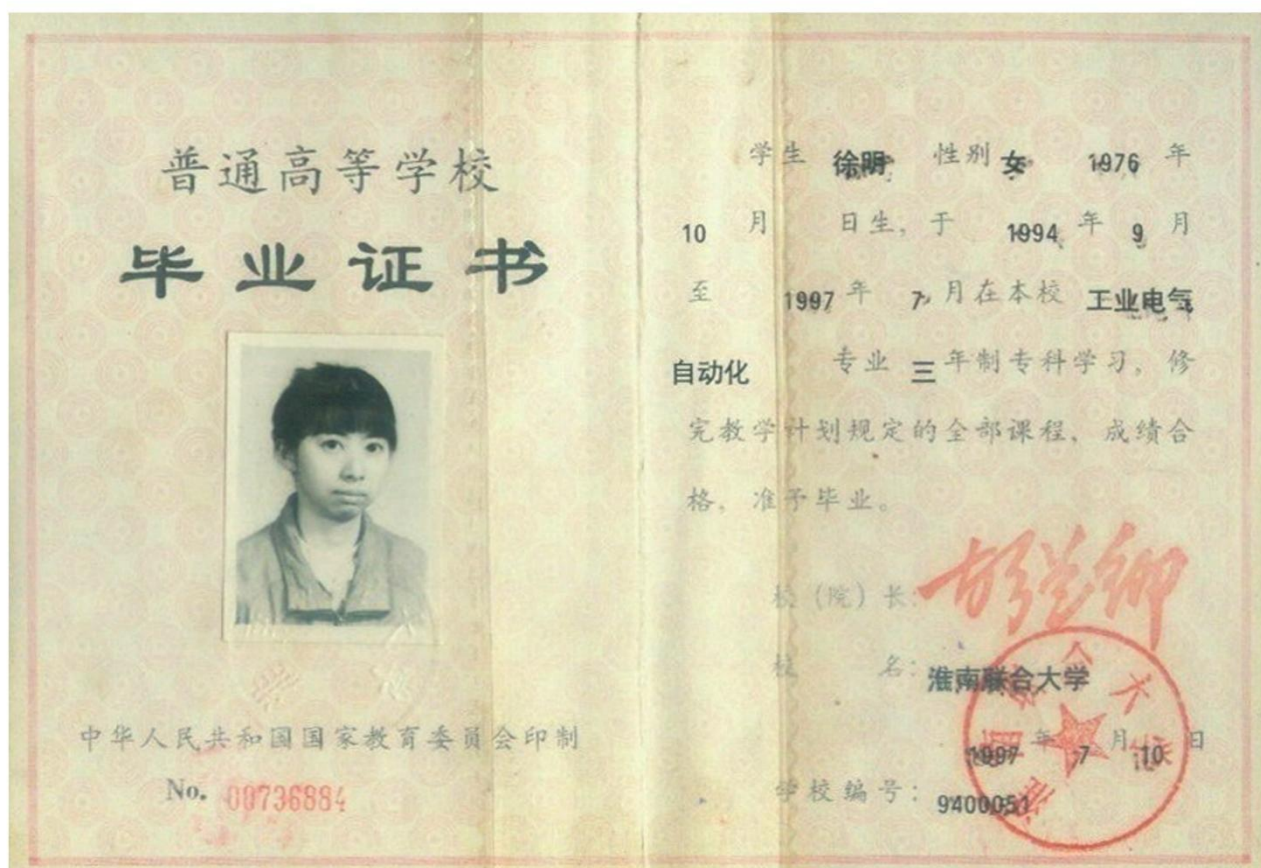 普通高等学校
毕业证书
中华人民共和国国家教育委员会印制
No. 00736884
学生 徐明 性别 女 1976 年
10 月 日生, 于 1994 年 9 月
至 1997 年 7 月在本校 工业电气
自动化 专业 三 年制专科学习, 修
完教学计划规定的全部课程、成绩合
格, 准予毕业。
校（院）长:
校 名: 淮南联合大学
1997 年 7 月 10 日
学校编号: 9400051
淮南联合大学